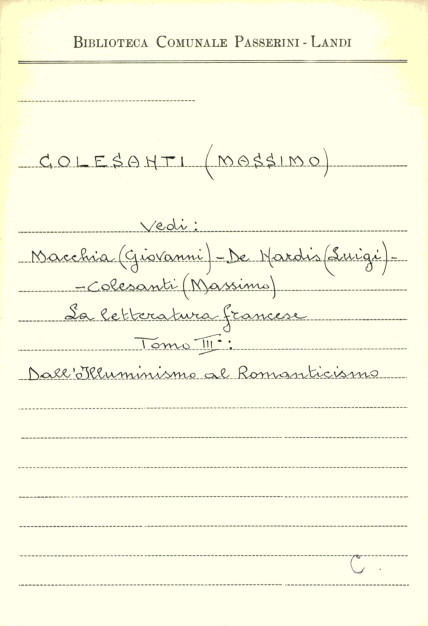 BIBLIOTECA COMUNALE PASSERINI - LANDI
COLESANTI (MASSIMO)
Vedi:
Macchia (Giovanni) - De Nardis (Luigi) -
- Colesanti (Massimo)
La letteratura francese
Tomo III°:
Dall'Illuminismo al Romanticismo
C.